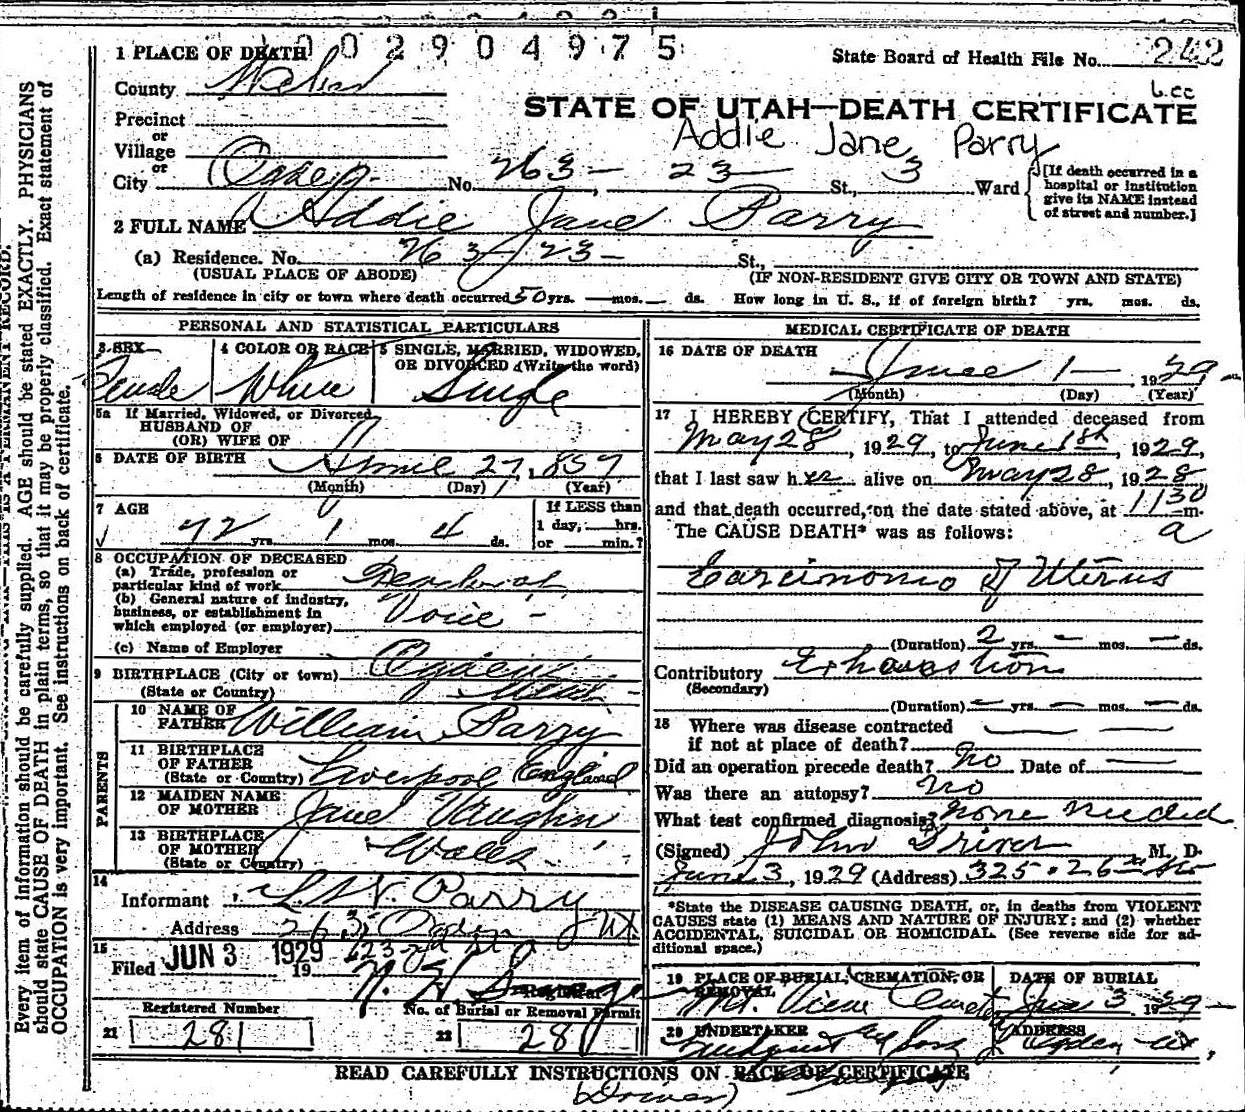 0 0 2 9 0 4 9 7 5
1 PLACE OF DEATH
State Board of Health File No. 242
County Weber
6.cc
STATE OF UTAH—DEATH CERTIFICATE
Precinct
or
Village
Addie Jane Parry
or
City Ogden No. 263- 23- St., 3 Ward
[If death occurred in a hospital or institution give its NAME instead of street and number.]
2 FULL NAME Addie Jane Parry
(a) Residence. No. 263- 23- St.,
(USUAL PLACE OF ABODE) (IF NON-RESIDENT GIVE CITY OR TOWN AND STATE)
Length of residence in city or town where death occurred 50 yrs. — mos. — ds. How long in U. S., if of foreign birth? yrs. mos. ds.
PERSONAL AND STATISTICAL PARTICULARS
3 SEX 4 COLOR OR RACE 5 SINGLE, MARRIED, WIDOWED,
OR DIVORCED (Write the word)
Female White Single
5a If Married, Widowed, or Divorced
HUSBAND OF
(OR) WIFE OF
6 DATE OF BIRTH 27, 1857
(Month) (Day) (Year)
7 AGE
72 yrs. 1 mos. 4 ds.
If LESS than
1 day, hrs.
or min.?
8 OCCUPATION OF DECEASED
(a) Trade, profession or
particular kind of work Teacher of
(b) General nature of industry,
business, or establishment in
which employed (or employer) Voice -
(c) Name of Employer
9 BIRTHPLACE (City or town) Ogden
(State or Country) Utah -
PARENTS
10 NAME OF
FATHER William Parry
11 BIRTHPLACE
OF FATHER
(State or Country) Liverpool England
12 MAIDEN NAME
OF MOTHER Jane Vaughn
13 BIRTHPLACE
OF MOTHER
(State or Country) Wales
14
Informant Parry
Address 263 Ogden Ut
23rd
15
Filed JUN 3 1929 19
Registrar
Registered Number No. of Burial or Removal Permit
21 281 22 280
MEDICAL CERTIFICATE OF DEATH
16 DATE OF DEATH
June 1 — 1929-
(Month) (Day) (Year)
17 I HEREBY CERTIFY, That I attended deceased from
May 28, 1929, to June 1st, 1929,
that I last saw her alive on May 28, 1928,
and that death occurred, on the date stated above, at 1130 m.
The CAUSE DEATH* was as follows: a
Carcinoma of Uterus
(Duration) 2 yrs. — mos. — ds.
Contributory Exhaustion
(Secondary)
(Duration) — yrs. — mos. — ds.
18 Where was disease contracted
if not at place of death?
Did an operation precede death? No Date of —
Was there an autopsy? No
What test confirmed diagnosis? None Needed
(Signed) John Driver M. D.
June 3, 1929 (Address) 325 - 26th
*State the DISEASE CAUSING DEATH, or, in deaths from VIOLENT
CAUSES state (1) MEANS AND NATURE OF INJURY; and (2) whether
ACCIDENTAL, SUICIDAL OR HOMICIDAL. (See reverse side for ad-
ditional space.)
19 PLACE OF BURIAL, CREMATION, OR
REMOVAL
DATE OF BURIAL
Mt. View Cemetery June 3 1929-
20 UNDERTAKER ADDRESS
Lindquist & Sons Ogden Ut,
READ CAREFULLY INSTRUCTIONS ON BACK OF CERTIFICATE
(Driver)
Every item of information should be carefully supplied. AGE should be stated EXACTLY. PHYSICIANS
should state CAUSE OF DEATH in plain terms, so that it may be properly classified. Exact statement of
OCCUPATION is very important. See instructions on back of certificate.